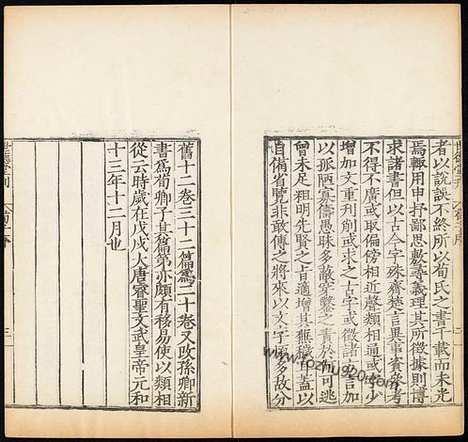 者以說說不終所以荀氏之書千載而未光
焉輒用申抒鄙思敷尋義理其所徵據則博
求諸書但以古今字殊齊楚言異事資參考
不得不廣或取偏傍相近聲類相通或字少
增加文重刊削或求之古字或徵諸方言加
以孤陋寡儔愚昧多蔽穿鑿之責於何可逃
曾未足粗明先賢之旨適增其蕪穢耳蓋以
自備省覽非敢傳之將來以文字繁多故分
舊十二卷三十二篇爲二十卷又改孫卿新
書爲荀卿子其篇第亦頗有移易使以類相
從云時歲在戊戌大唐睿聖文武皇帝元和
十三年十二月也